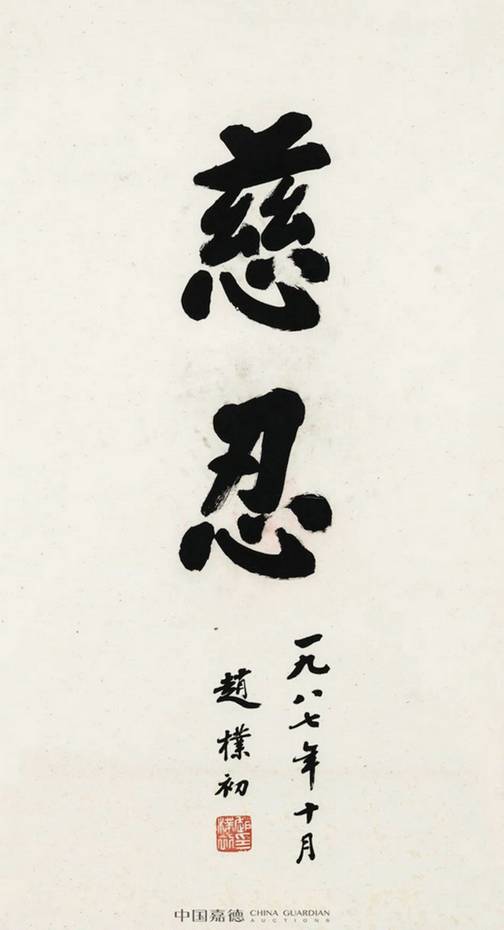 慈忍
一九八七年十月
趙樸初
中国嘉德 CHINA GUARDIAN
AUCTIONS